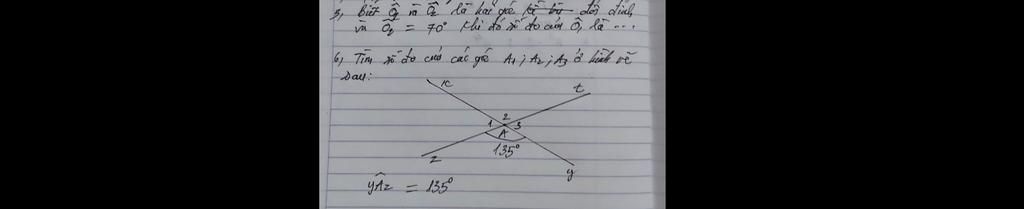 5, Biết Ô1 và Ô2 là hai góc kề bù đối đỉnh
và Ô2 = 70° khi đó số đo của Ô1 là ...
6, Tìm số đo của các góc A1; A2; A3 ở hình vẽ
sau:
x
t
2
1
3
A
135°
z
y
yÂz = 135°